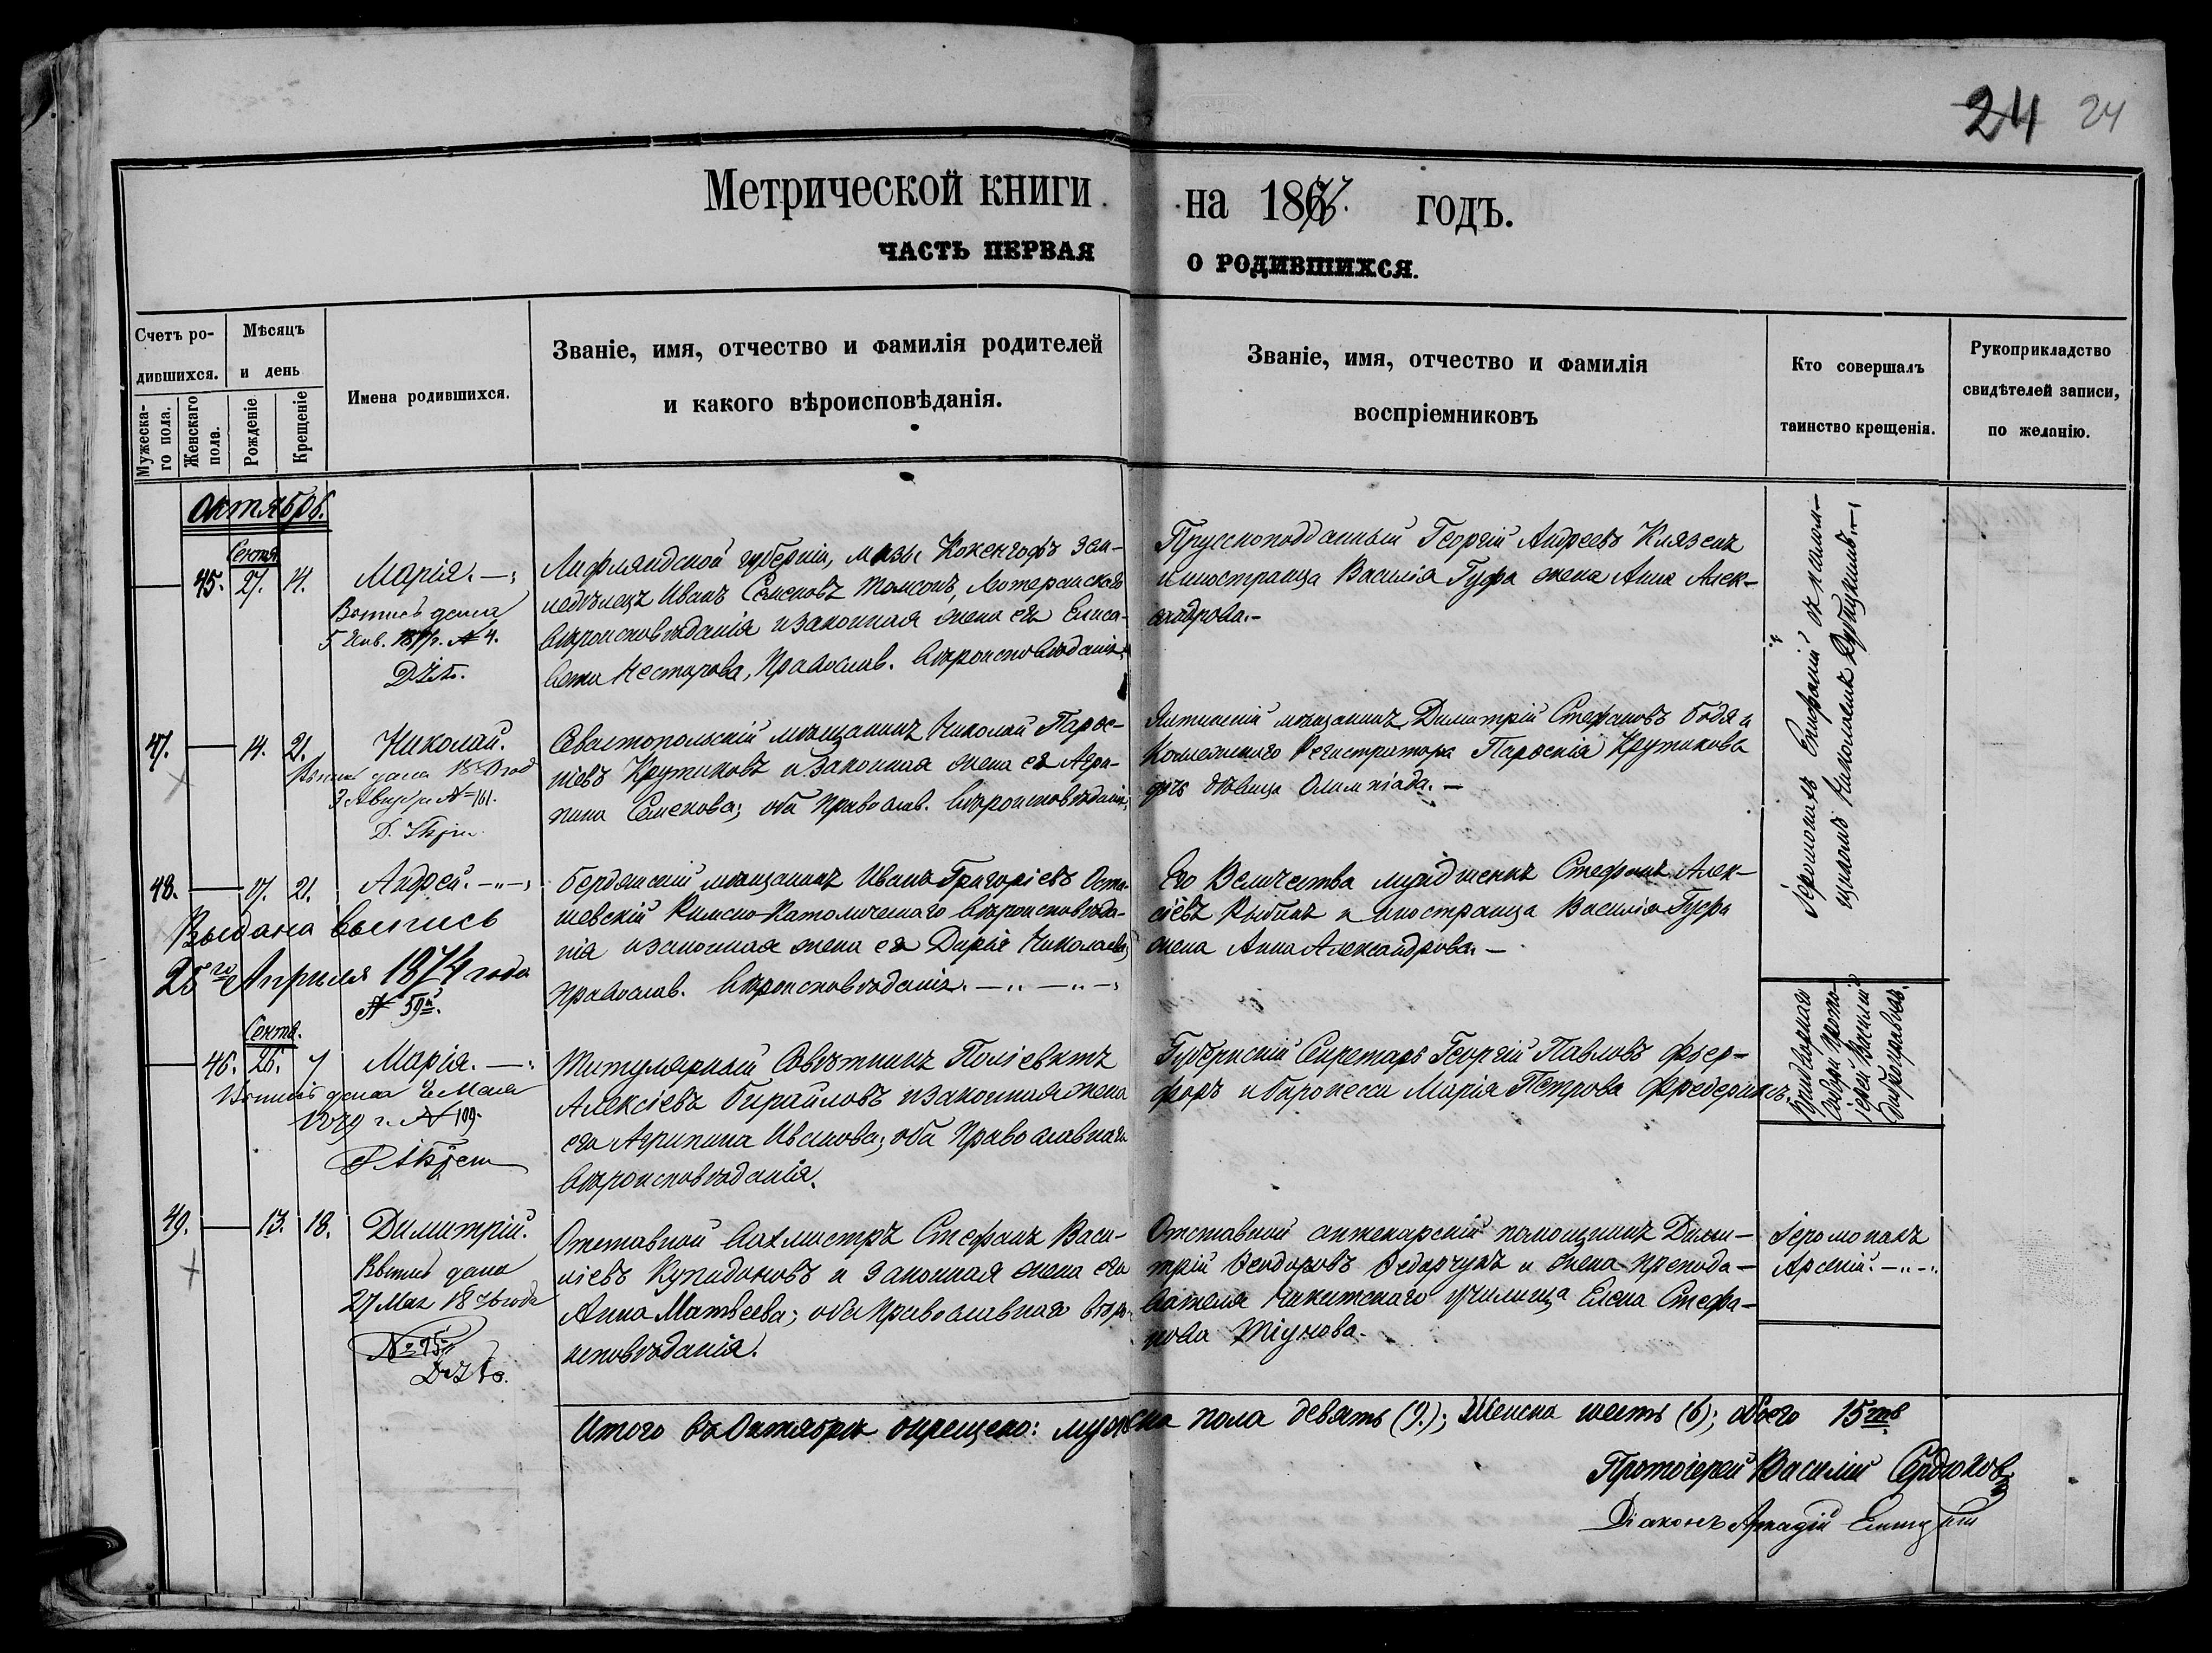 24 24
Метрической книги на 1867. годъ.
ЧАСТЬ ПЕРВАЯ О РОДИВШИХСЯ.
Счетъ ро-
дившихся.
Мужеска-
го пола.
Женскаго
пола.
Мѣсяцъ
и день
Рожденіе
Крещеніе
Имена родившихся.
Званіе, имя, отчество и фамилія родителей
и какого вѣроисповѣданія.
Званіе, имя, отчество и фамилія
воспріемниковъ
Кто совершалъ
таинство крещенія.
Рукоприкладство
свидѣтелей записи,
по желанію.
Октябрь.
Сентя
45. 27. 14. Марія.
Вопись дана
5 Янв. № 4.
Лифляндской губерніи, мызы Кокенгофъ зем-
ледѣлецъ Иванъ Семеновъ Томсонъ, Лютеранскаго
вѣроисповѣданія и законная жена его Елиса-
вета Нестерова, Православ. вѣроисповѣданія
Прусскоподданный Георгій Андреевъ Клязенъ
и иностранца Василія Гуфа жена Анна Алек-
сандрова.-
47. 14. 21. Николай.
дана 18 год
3 Августа № 161.
Севастопольскій мѣщанинъ Николай Парѳе-
ніевъ Крутиковъ и законная жена его Агри-
пина Семенова; оба православ. вѣроисповѣданія,
Ялтинскій мѣщанинъ Димитрій Стефановъ Бодя и
Коллежскаго Регистратора Парѳенія Крутикова
дочь дѣвица Олимпіада. —
48. 17. 21. Андрей.
Выдана вопись
25го Апрѣля 1874 года
№ 59й.
Бердянскій мѣщанинъ Иванъ Григоріевъ Оста-
шевскій Римско-Католическаго вѣроисповѣда-
нія и законная жена его Дарія Николаева,
православ. вѣроисповѣданія.
Его Величества мундшенкъ Стефанъ Алек-
сѣевъ Рыбинъ и иностранца Василія Гуфа
жена Анна Александрова. —
Іеромонахъ Епифаній съ
Николаемъ
Сентя.
46. 26. 7 Марія.
Вопись дана 2 Мая
1879 г. № 109.
Титулярный Совѣтникъ Поліевктъ
Алексіевъ Бирайловъ и законная жена
его Агрипина Иванова; оба Православнаго
вѣроисповѣданія.
Губернскій Секретарь Георгій Павловъ Фъер-
форъ и баронесса Марія Петрова Фредериксъ.
Придворнаго
Собора Прото-
іерей Василій
49. 13. 18. Димитрій.
Вопись дана
27 Мая 1876 года
№ 95
Отставной вахмистръ Стефанъ Васи-
ліевъ Купидоновъ и законная жена его
Анна Матвеева; оба православнаго вѣро-
исповѣданія.
Отставной аптекарскій помощникъ Дими-
трій Ѳеодоровъ Ѳедорчукъ и жена препода-
вателя Никитскаго училища Елена Стефа-
нова Тіунова.
Іеромонахъ
Арсеній.
Итого въ Октябрѣ окрещено: мужска пола девять (9.); Женска шесть (6); обоего 15ть
Протоіерей Василій Сердюковъ
Діаконъ Аркадій